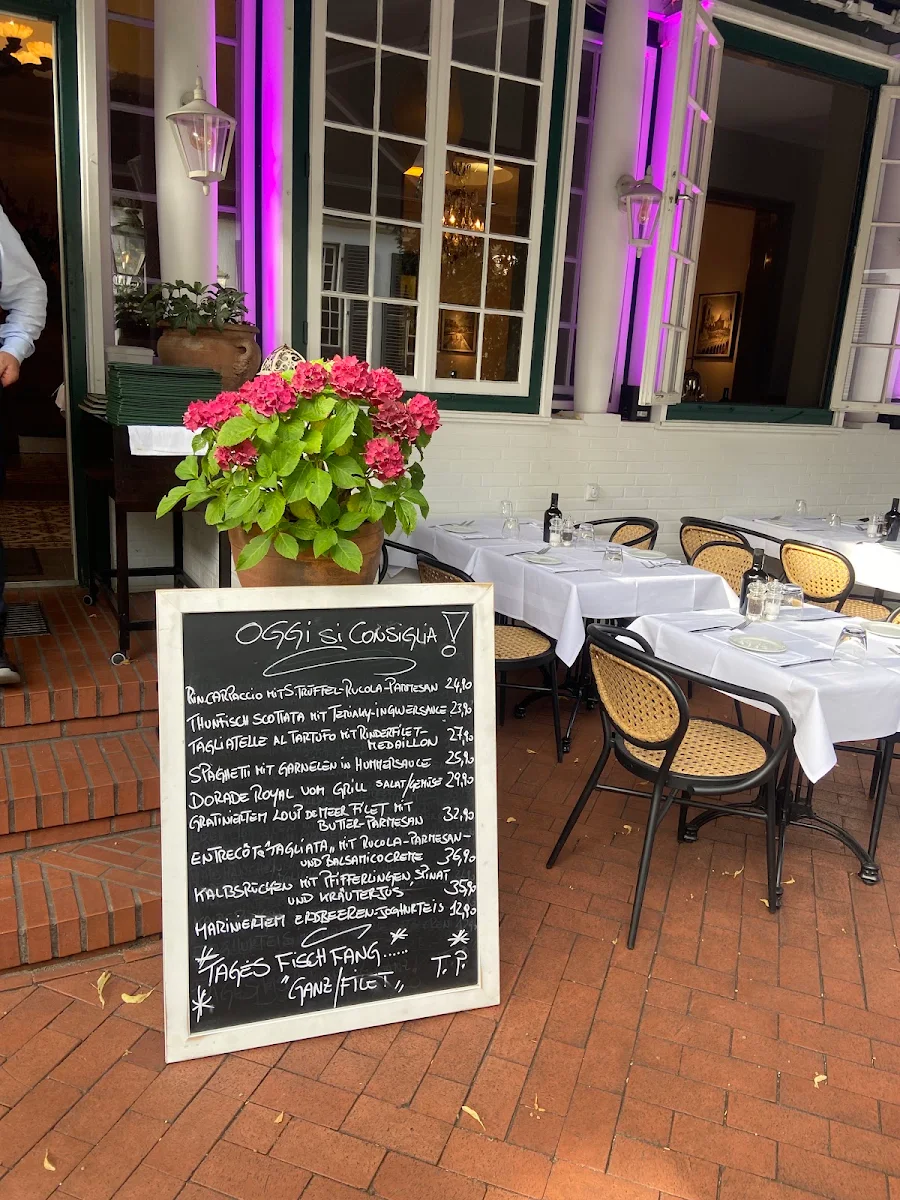 OGGI SI CONSIGLIA!
RIN.CARPACCIO MIT S.TRÜFFEL-RUCOLA-PARMESAN 24,90
THUNFISCH SCOTTATA MIT INGWERSAUCE 23,90
TAGLIATELLE AL TARTUFO MIT RINDERFILET-
MEDAILLON 27,90
SPAGHETTI MIT GARNELEN IN HUMMERSAUCE 25,90
DORADE ROYAL VOM GRILL SALAT/GEMÜSE 29,90
GRATINIERTEM LOUP DE MEER FILET MIT
BUTTER-PARMESAN 32,90
ENTRECÔTE "TAGLIATA" MIT RUCOLA-PARMESAN-
UND BALSAMICOCREME 36,90
KALBSRÜCKEN MIT PFIFFERLINGEN, SPINAT
UND KRÄUTERJUS 35,90
MARINIERTEM ERDBEEREN-JOGHURTEIS 12,90
TAGES FISCHFANG.....
"GANZ/FILET" T.P.